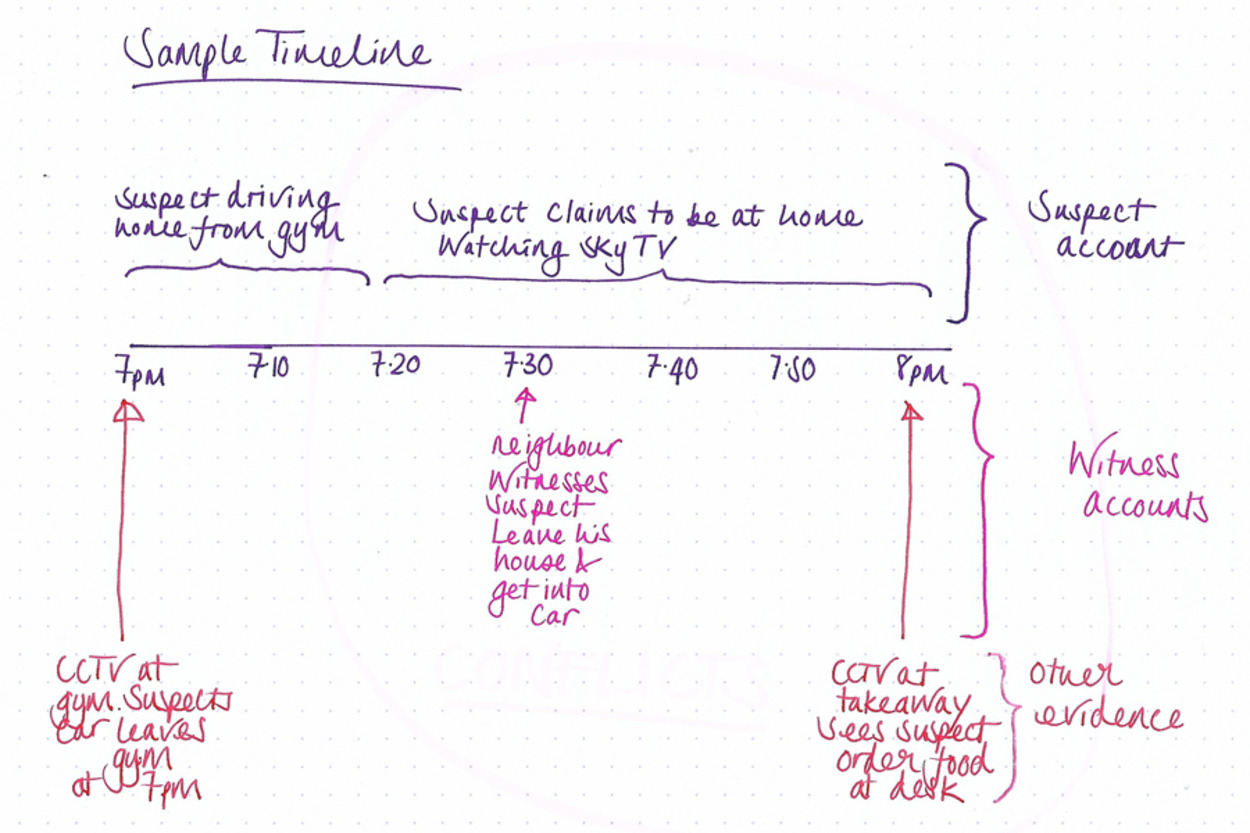 Sample Timeline
Suspect driving
home from gym
Suspect claims to be at home
Watching Sky TV
Suspect
account
7pm
7.10
7.20
7.30
7.40
7.50
8pm
neighbour
Witnesses
Suspect
Leave his
house &
get into
Car
Witness
accounts
CCTV at
gym. Suspects
car leaves
gym
at 7pm
CCTV at
takeaway
sees suspect
order food
at desk
other
evidence
CONFLICTS